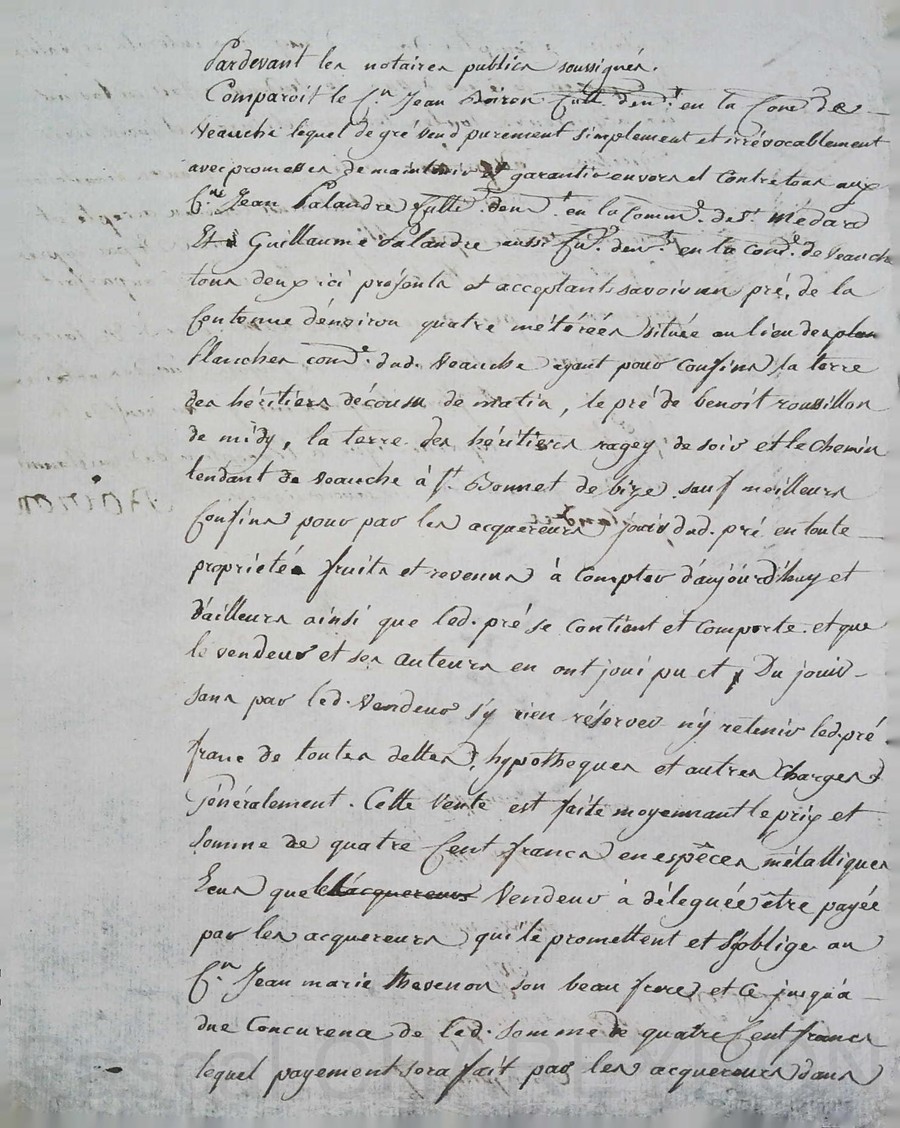 Pardevant les notaires publics soussignés.
Comparoit le C.en Jean Boiron Cult. dem.t en la Com.e de
Veauche lequel de gré vend purement simplement et irrévocablement
avec promesses de maintenir et garantir envers et contre tous aux
C.ens Jean Palandre Culti. dem.t en la Comm.e de S.t Médard
Et Guillaume Palandre aussi Cul.r dem.t en la Com.e de Veauche
tous deux ici présents et acceptants savoir un pré, de la
Contenue d'environ quatre métérées située au lieu des plan
Planches com.e dud. Veauche ayant pour confins la terre
des héritiers décousu de matin, le pré de benoit roussillon
de midy, la terre des héritiers ragey de soir et le Chemin
tendant de Veauche à S.t Bonnet de bize sauf meilleurs
Confins pour par les acquereurs jouir dud. pré en toute
proprieté fruits et revenus à Compter d'aujourd'huy et
d'ailleurs ainsi que led. pré se Contient et Comporte et que
le vendeur et ses auteurs en ont joui pu et Du jouir
sans par led. Vendeur s'y rien réserver n'y retenir led. pré
franc de toutes dettes, hypotheques et autres Charges
Généralement. Cette Vente est faite moyennant le prix et
somme de quatre Cent francs en espèces métalliques
que l'acquereur Vendeur à déleguée être payée
par les acquereurs qui le promettent et s'y oblige au
C.en Jean marie thevenon son beau frere et Ce jusqu'a
due Concurence de lad. somme de quatre Cent francs
lequel payement sera fait par les acquereurs dans
Boiron